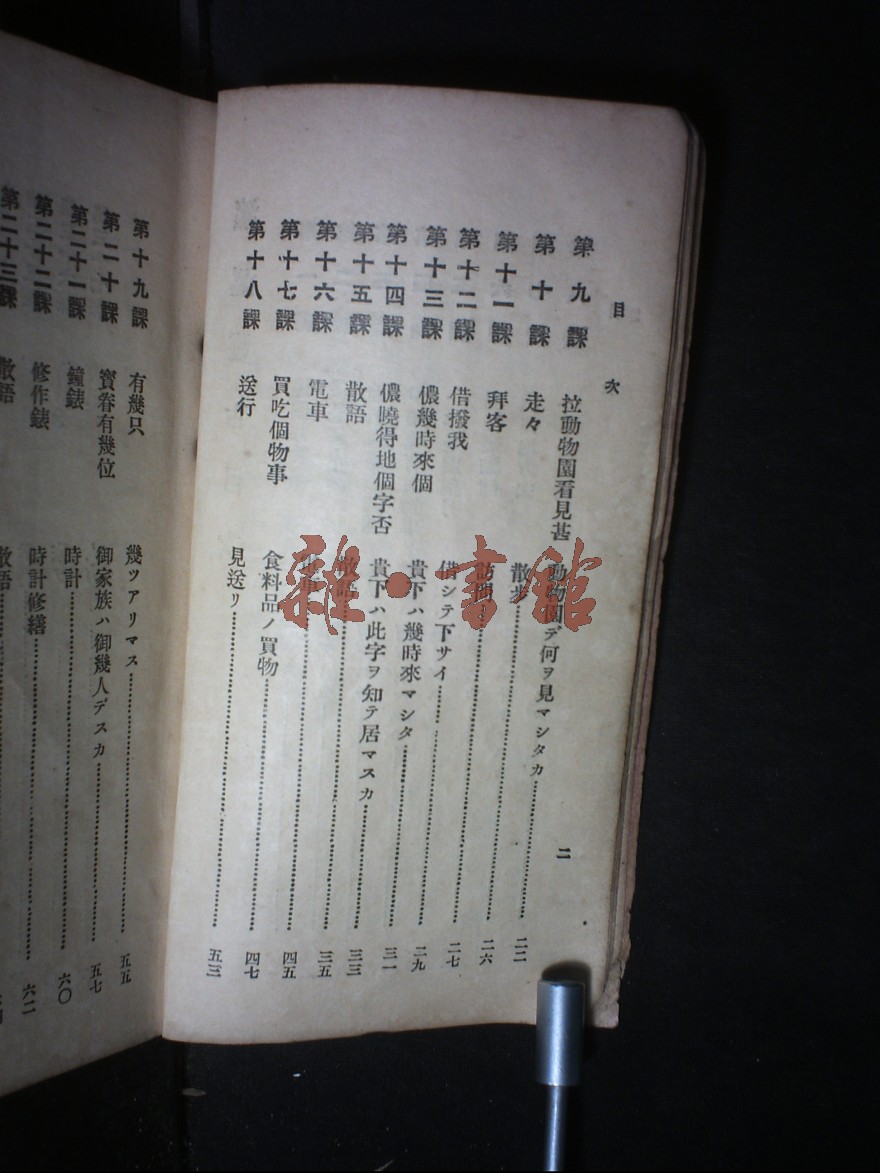 目次 二
第九課 拉動物園看見甚 動物園デ何ヲ見マシタカ 二二
第十課 走々 散步 二六
第十一課 拜客 訪問 二七
第十二課 借撥我 借シテ下サイ 二九
第十三課 儂幾時來個 貴下ハ幾時來マシタ 三一
第十四課 儂曉得地個字否 貴下ハ此字ヲ知テ居マスカ 三三
第十五課 散語 散語 三五
第十六課 電車 電車 四五
第十七課 買吃個物事 食料品ノ買物 四七
第十八課 送行 見送リ 五三
第十九課 有幾只 幾ツアリマス 五五
第二十課 寳眷有幾位 御家族ハ御幾人デスカ 五七
第二十一課 鐘錶 時計 六〇
第二十二課 修作錶 時計修繕 六二
第二十三課 散語 散語
雜·書館